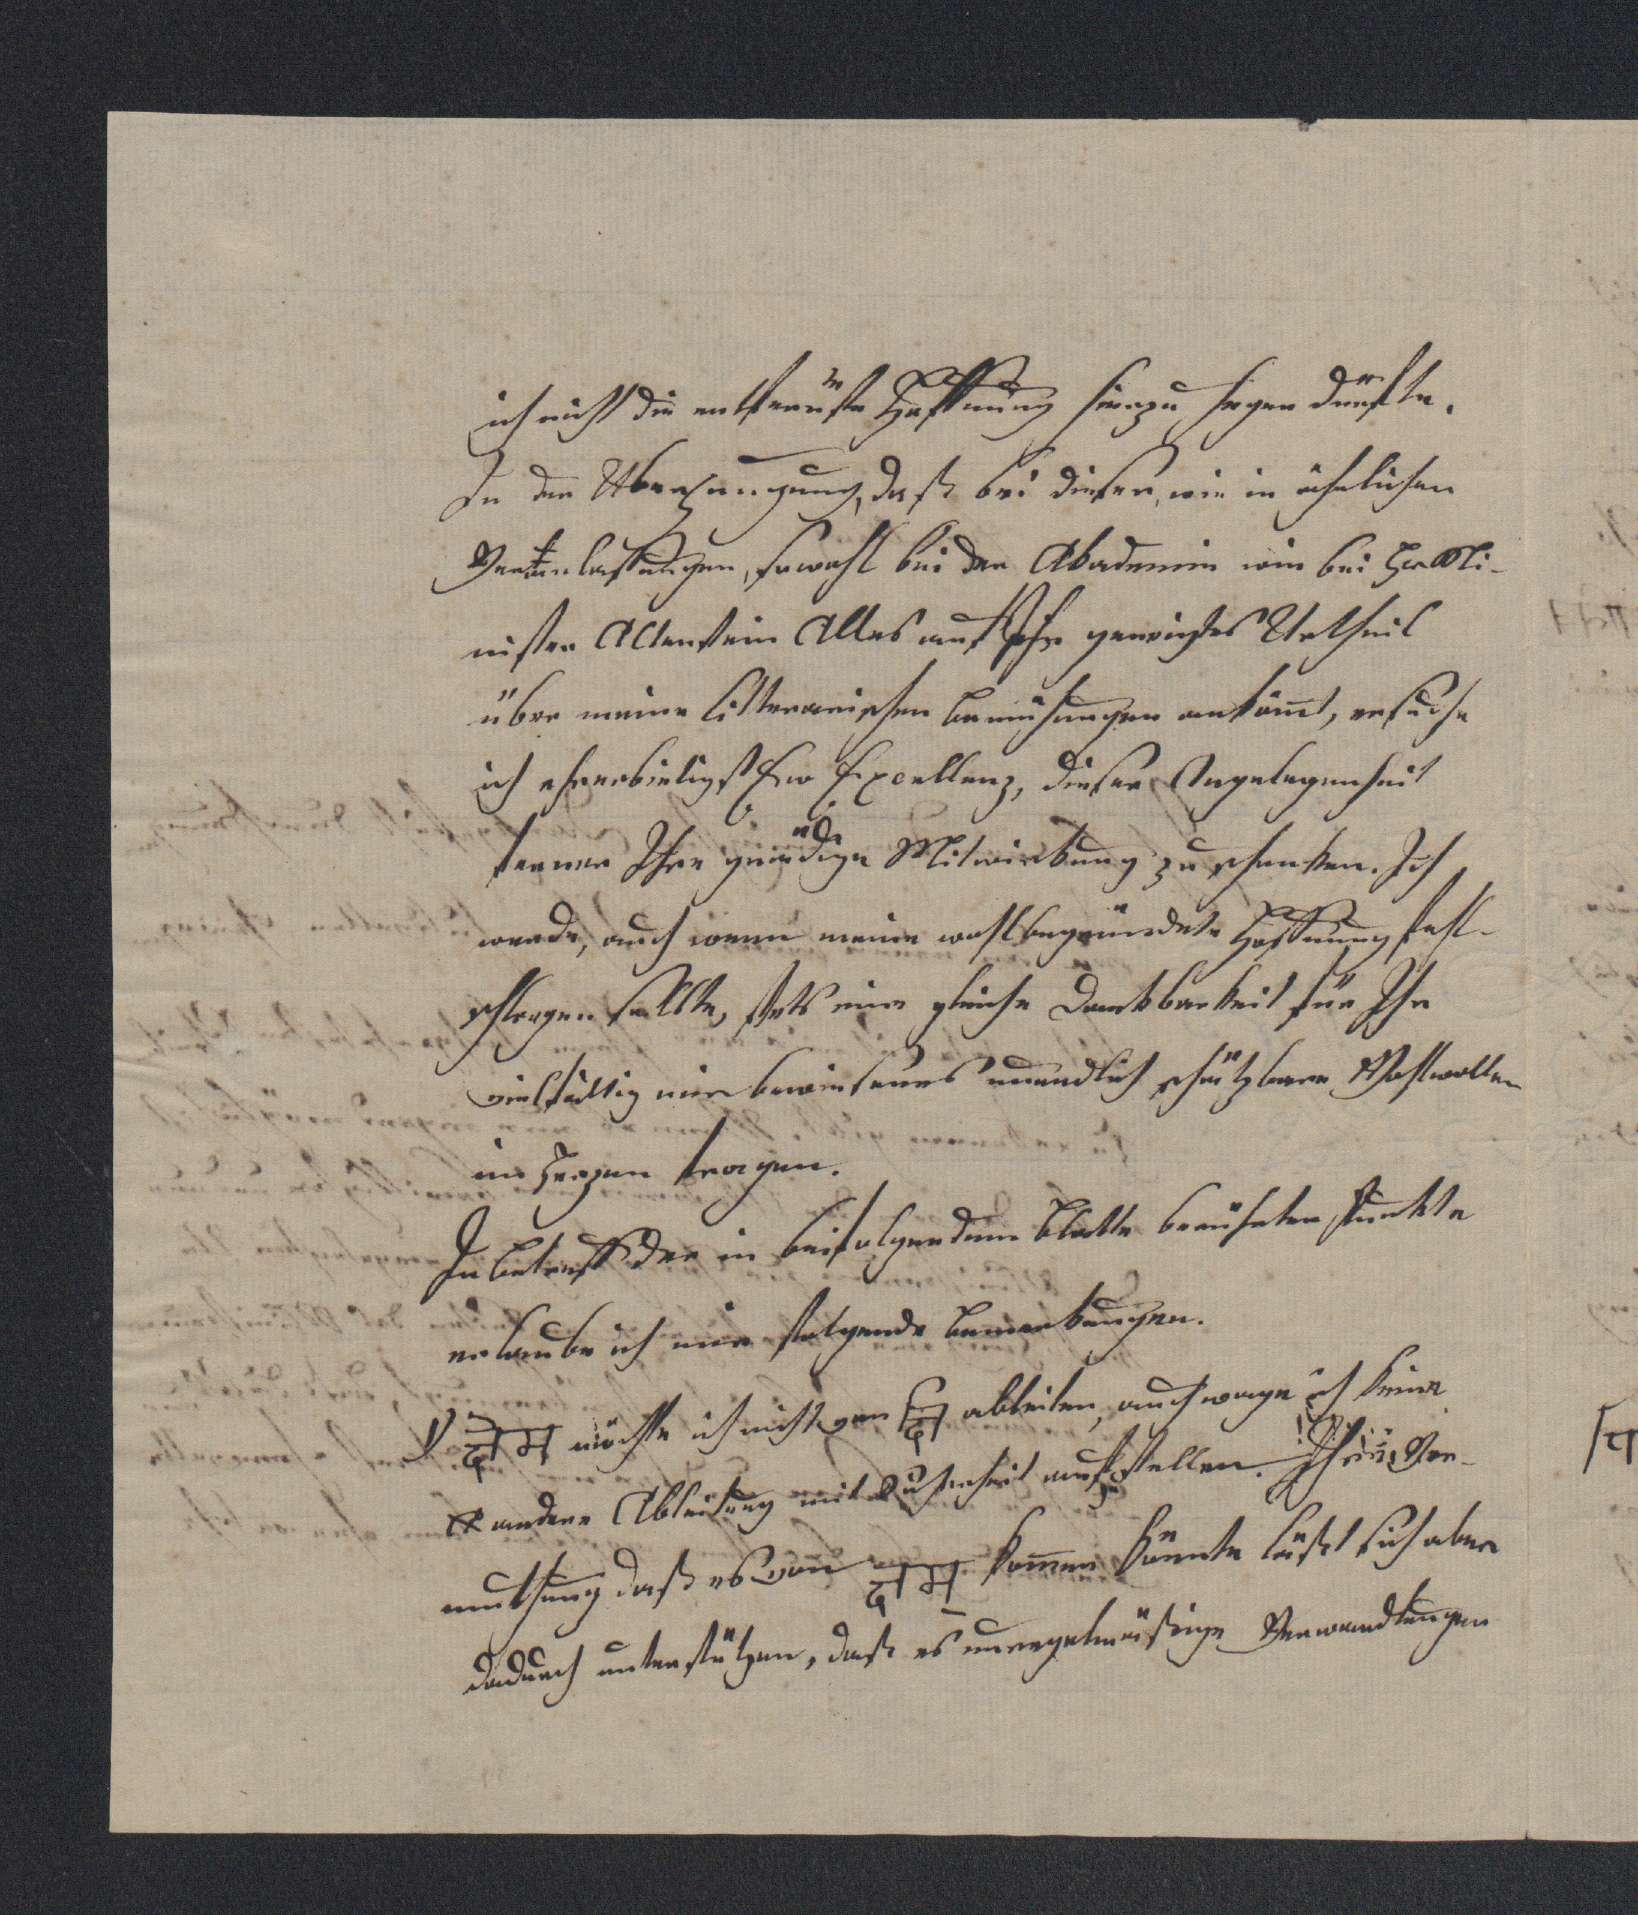 ich nicht die entfernste Hoffnung hierzu hegen dürfte.
In der Überzeugung, daß bei dieser, wie in ähnlichen
Veranlassungen, sowohl bei der Akademie wie bei Hr Mi-
nister Altenstein Alles auf Ihr gewichtes Urtheil
über meine litterarischen Bemühungen ankömt, ersuche
ich ehrerbietigst Ew Excellenz, dieser Angelegenheit
ferner Ihre gnädige Mitwirkung zu schenken. Ich
werde, auch wenn meine wohlbegründete Hoffnung fehl-
schlagen sollte, stets eine gleiche Dankbarkeit für Ihr
vielfältig mir bewiesenes unendlich schätzbare Wohlwollen
im Herzen tragen.
In Betreff der in beifolgendem Blatte berührten Punkte
erlaube ich mir folgende Bemerkungen.
möchte ich nicht von ableiten, auch wage ich keine
andere Ableitung mit Sicherheit aufstellen. Ihre Ver-
muthung daß es von kommen könnte läßt sich aber
dadurch unterstützen, daß es unregelmäßige Verwandlungen